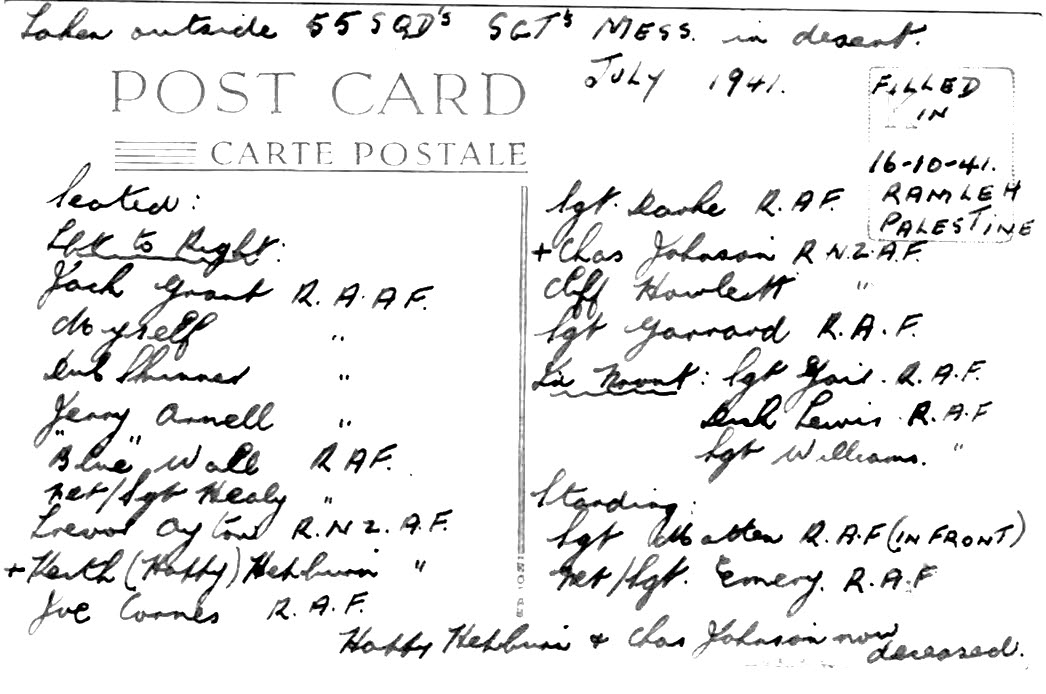 Taken outside 55 SQD's SGT's MESS. in desert.
JULY 1941.
POST CARD
CARTE POSTALE
FILLED
IN
16-10-41.
RAMLEH
PALESTINE
Seated:
Left to Right:
Jack Grant R.A.A.F.
Myself "
Skinner "
Jerry Arnell "
"Blue" Wall R.A.F.
Met/Sgt Healy "
Trevor R.N.Z.A.F.
+ Keith (Happy) Hepburn "
Joe Cornes R.A.F.
Sgt. R.A.F.
+ Chas Johnson R.N.Z.A.F.
Cliff Howlett "
Sgt Garrard R.A.F.
In Front: Sgt R.A.F.
Dick Lewis R.A.F
Sgt Williams. "
Standing:
Sgt R.A.F (IN FRONT)
Met/Sgt. Emery. R.A.F
Happy Hepburn & Chas Johnson now
deceased.